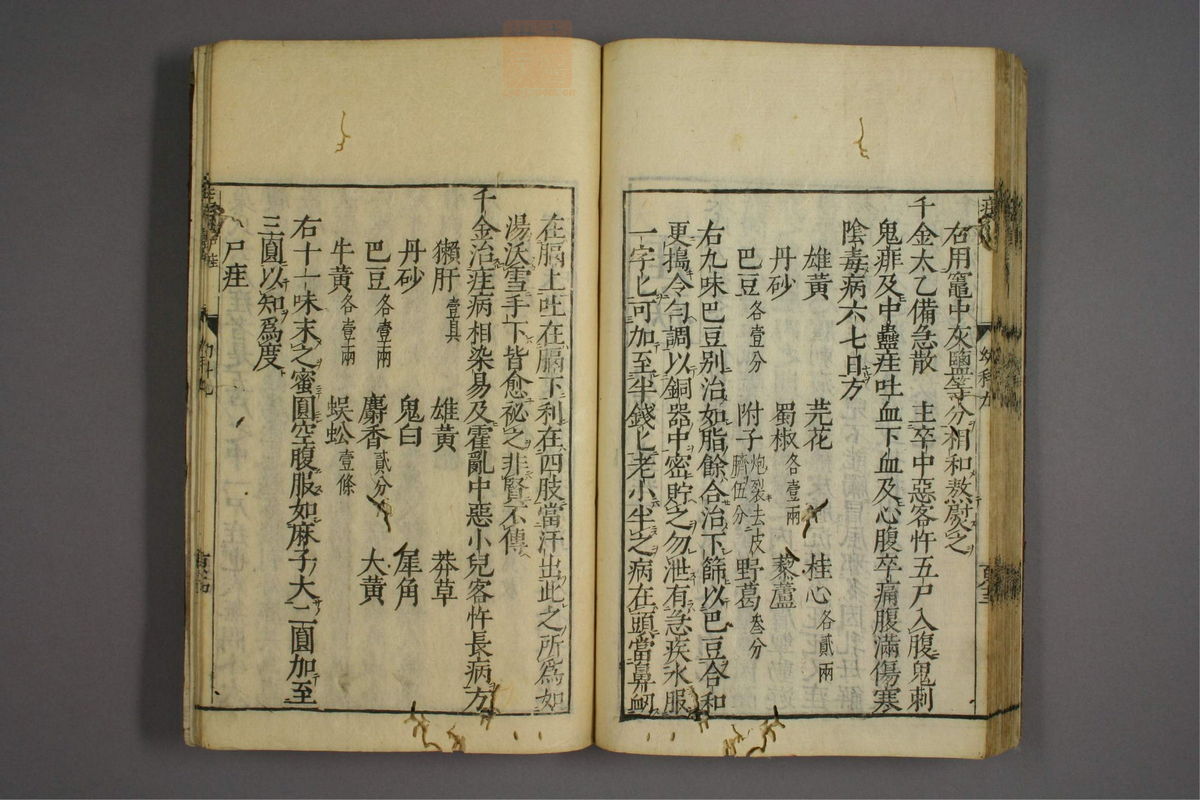 右用竈中灰鹽等分相和熬熨之
千金太乙備急散 主卒中惡客忤五尸入腹鬼刺
鬼痱及中蠱疰吐血下血及心腹卒痛腹滿傷寒
陰毒病六七日方
雄黃 芫花 桂心各貳兩
丹砂 蜀椒各壹兩 藜蘆
巴豆各壹分 附子炮裂去皮臍伍分 野葛叁分
右九味巴豆別治如脂餘合治下篩以巴豆合和
更搗令勻調以銅器中密貯之勿泄有急疾水服
一字匕可加至半錢匕老小半之病在頭當鼻衂
在膈上吐在膈下利在四肢當汗出此之所爲如
湯沃雪手下皆愈祕之非賢不傳
千金治疰病相染易及霍亂中惡小兒客忤長病方
獺肝壹具 雄黃 莽草
丹砂 鬼臼 犀角
巴豆各壹兩 麝香貳分 大黃
牛黃各壹兩 蜈蚣壹條
右十一味末之蜜圓空腹服如麻子大二圓加至
三圓以知爲度
尸疰